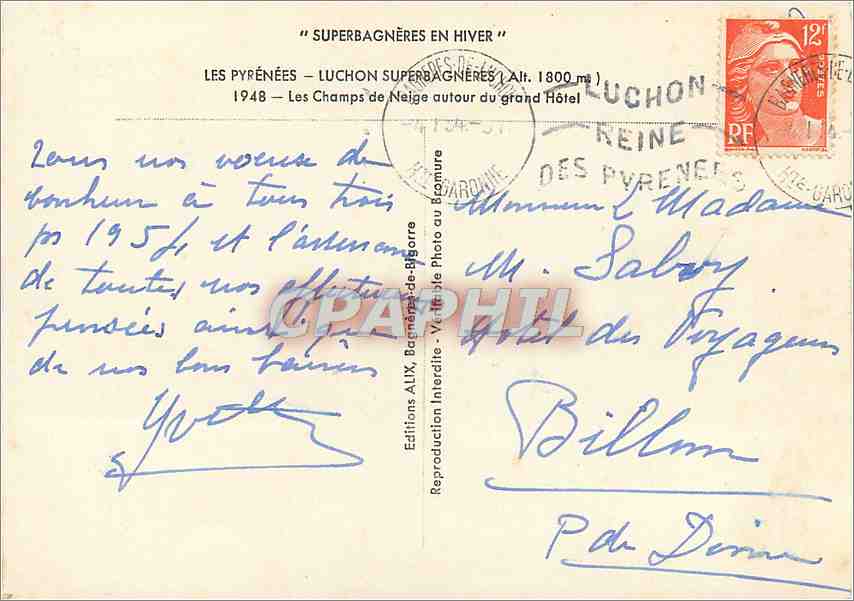 " SUPERBAGNÈRES EN HIVER "
LES PYRÉNÉES — LUCHON SUPERBAGNÈRES (Alt. 1800 m.)
1948 — Les Champs de Neige autour du grand Hôtel
12F
POSTES
RF
BAGNÈRES-DE-LUCHON
HTE-GARONNE
LUCHON
REINE
DES PYRENEES
Tous nos voeux de
bonheur à tous trois
pr 1954 et l'assurance
de toutes nos affectueuses
pensées ainsi que
de nos bons baisers
Yvette
Editions ALIX, Bagnères-de-Bigorre
Reproduction Interdite - Véritable Photo au Bromure
Monsieur & Madame
M. Sabry
Hôtel des Voyageurs
Billom
P de Dôme
CPAPHIL